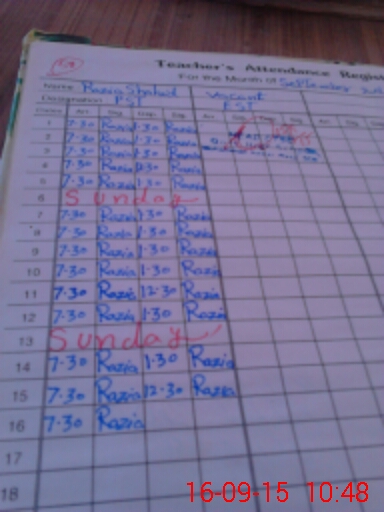 Teacher's Attendance Regis
For the Month of September
Name Razia Shahid Vacant
Designation PST PST
Dates Arr. Sig. Dep. Sig. Arr. Sig. Dep. Sig.
1 7.30 Razia 1.30 Razia
2 7.30 Razia 1.30 Razia
3 7.30 Razia 1.30 Razia
4 7.30 Razia Razia
5 7.30 Razia 1.30 Razia
6 Sunday
7 7.30 Razia 1.30 Razia
8 7.30 Razia 1.30 Razia
9 7.30 Razia 1.30 Razia
10 7.30 Razia 1.30 Razia
11 7.30 Razia 12.30 Razia
12 7.30 Razia 1.30 Razia
13 Sunday
14 7.30 Razia 1.30 Razia
15 7.30 Razia 12.30 Razia
16 7.30 Razia
17
18
16-09-15 10:48